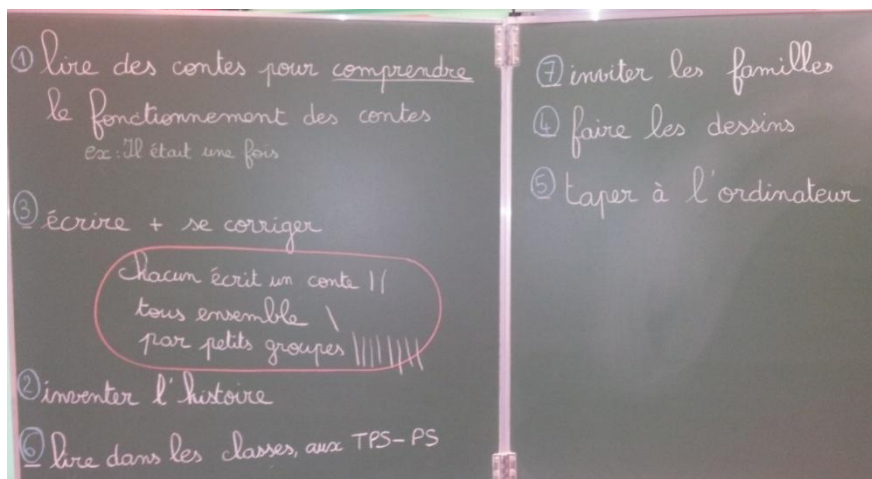 ① lire des contes pour comprendre
le fonctionnement des contes
ex : Il était une fois
③ écrire + se corriger
chacun écrit un conte ||
tous ensemble \
par petits groupes |||||||||
② inventer l'histoire
⑥ lire dans les classes, aux TPS-PS
⑦ inviter les familles
④ faire les dessins
⑤ taper à l'ordinateur